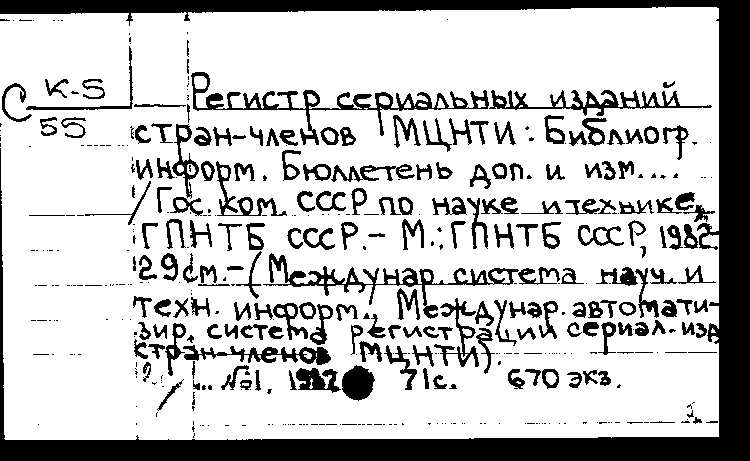 С К-5
55
Регистр сериальных изданий
стран-членов МЦНТИ: Библиогр.
информ. Бюллетень доп. и изм....
/ Гос. ком. СССР по науке и технике,
ГПНТБ СССР.- М.: ГПНТБ СССР, 1982.
29см.-(Междунар. система науч. и
техн. информ., Междунар. автомати-
зир. система регистрации сериал. изд
стран-членов МЦНТИ).
... №1. 1982 71с. 670 экз.